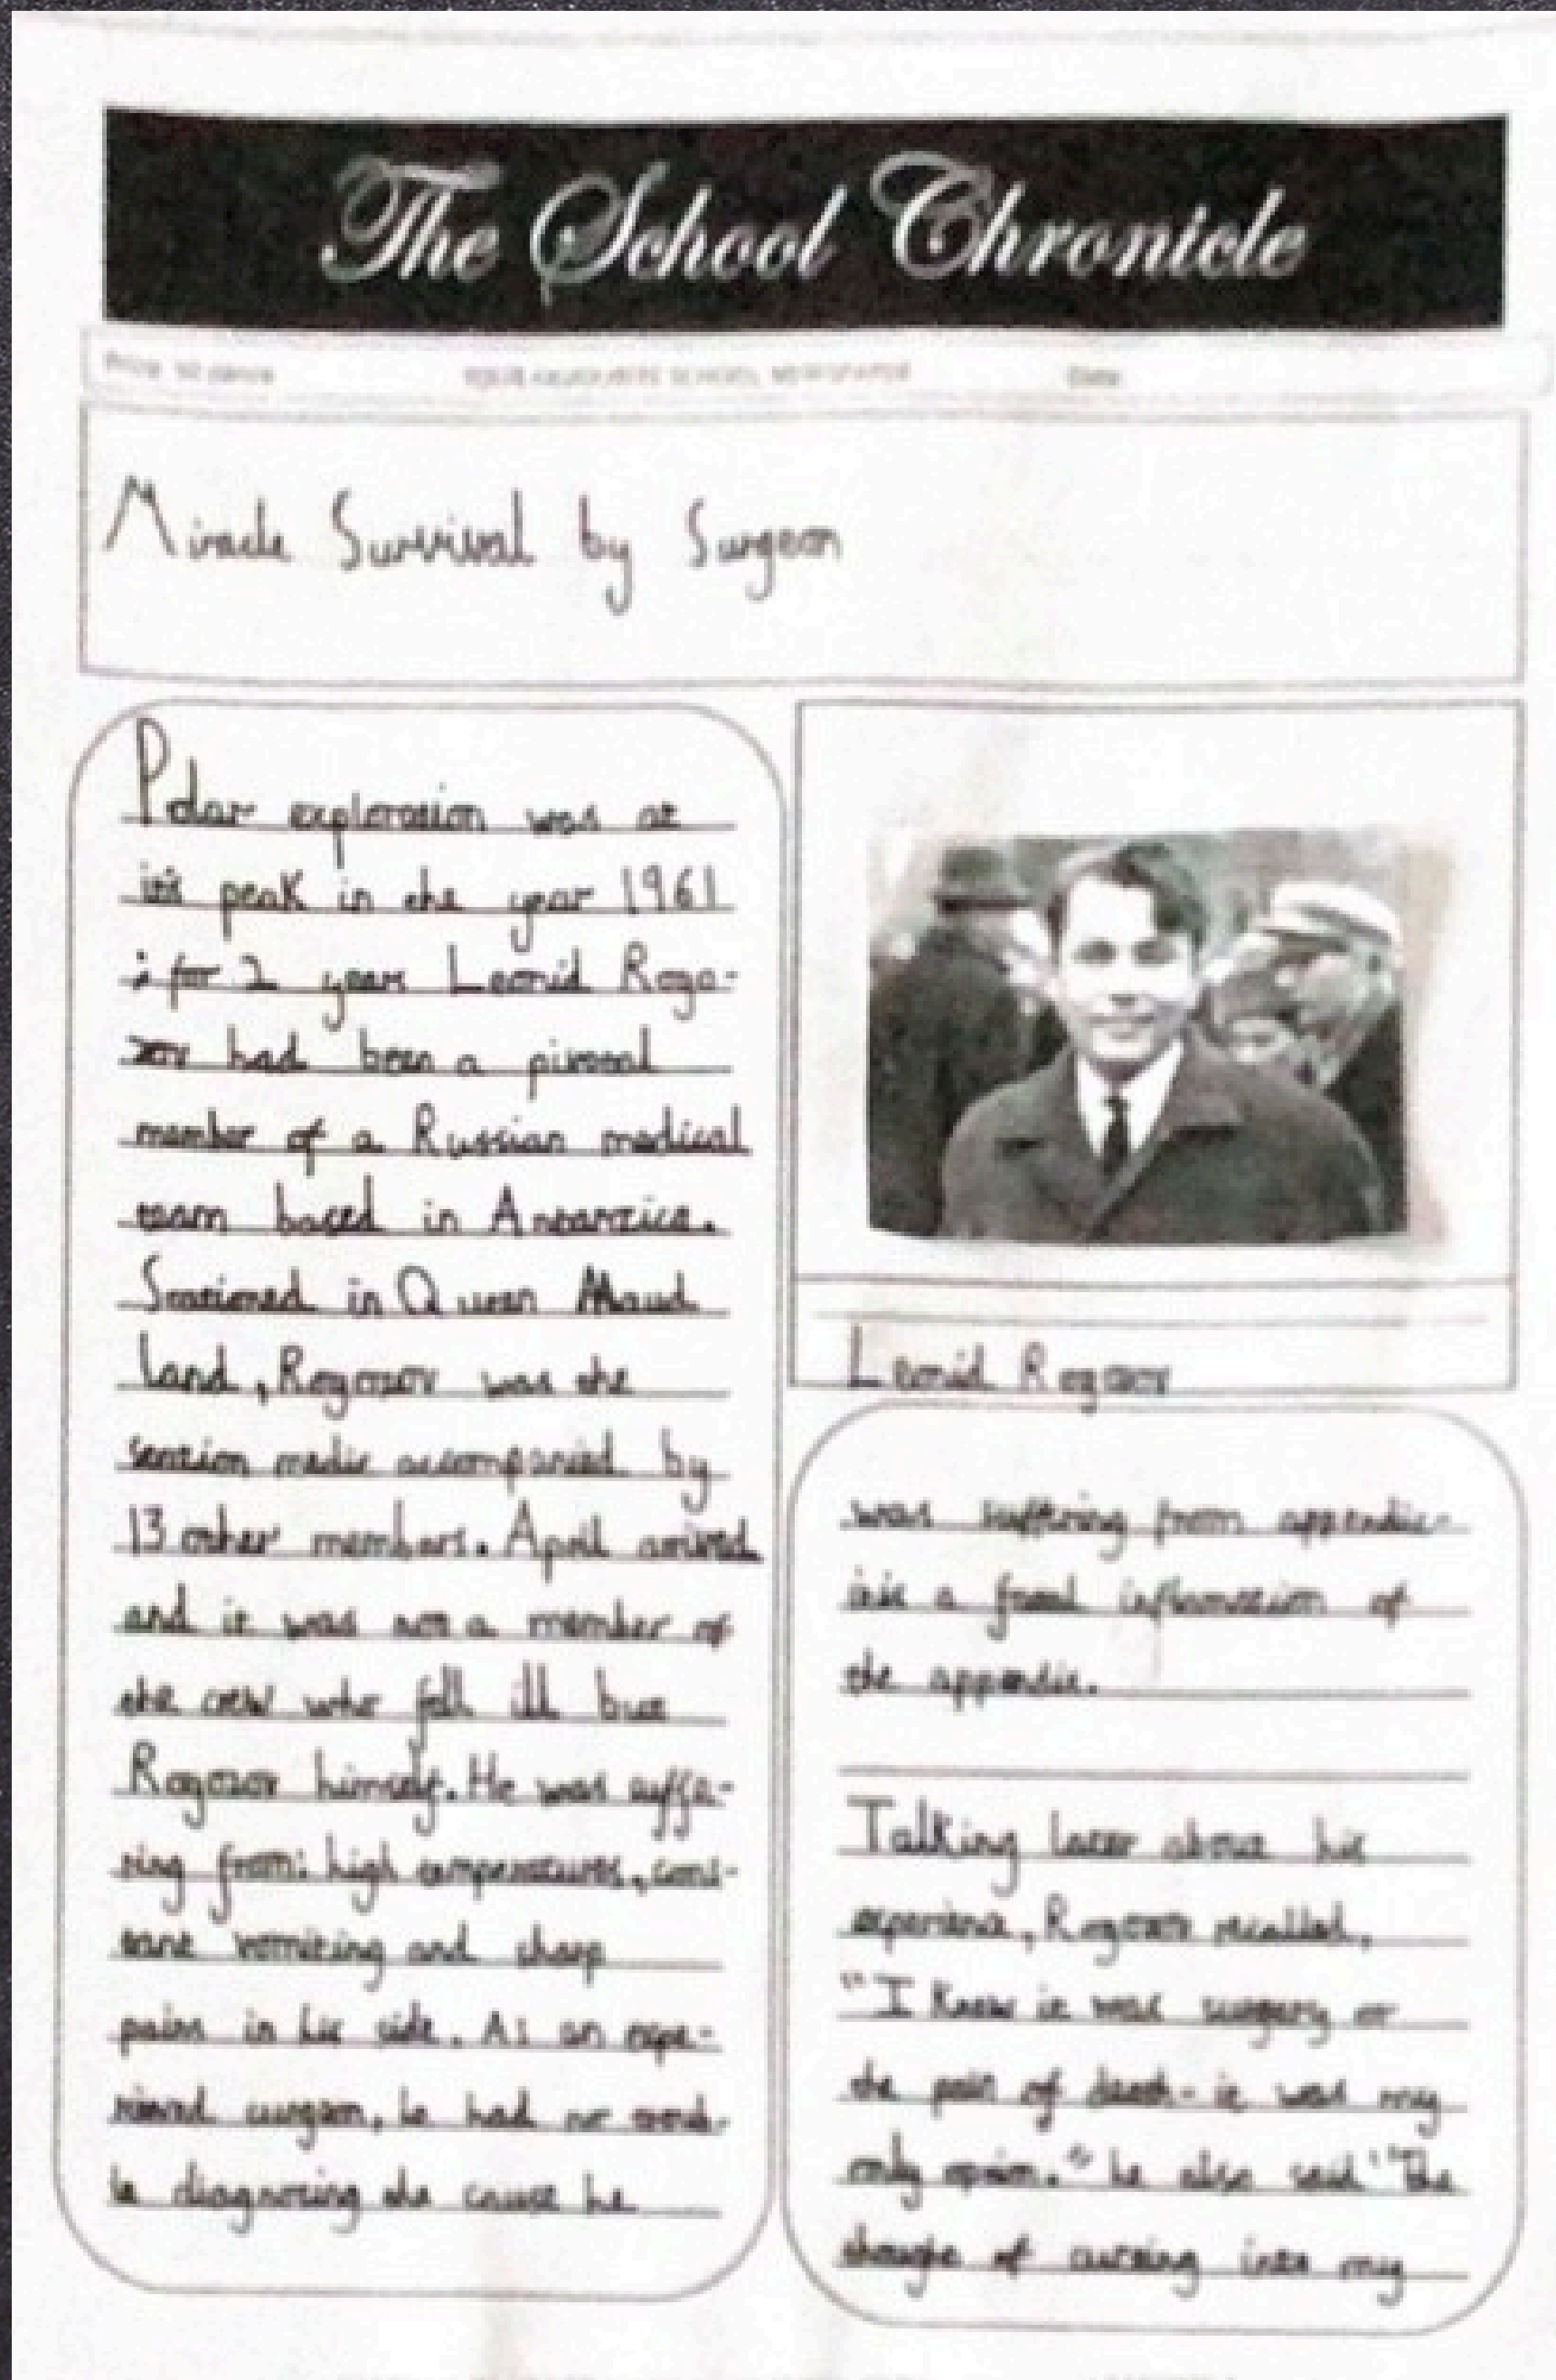 The School Chronicle
Price 50 pence YOUR FAVOURITE SCHOOL NEWSPAPER Date
Miracle Survival by Surgeon
Polar exploration was at
it's peak in the year 1961
; for 2 years Leonid Rogo-
zov had been a pivotal
member of a Russian medical
team based in Antarctica.
Stationed in Queen Maud
land, Rogozov was the
station medic accompanied by
13 other members. April arrived
and it was not a member of
the crew who fell ill but
Rogozov himself. He was suffe-
ring from: high temperatures, cons-
tant vomiting and sharp
pains in his side. As an expe-
rienced surgeon, he had no troub-
le diagnosing the cause he
Leonid Rogozov
was suffering from appendic-
itis a fatal inflamation of
the appendix.
Talking later about his
experience, Rogozov recalled,
"I knew it was surgery or
the pain of death - it was my
only option." he also said "The
thought of cutting into my